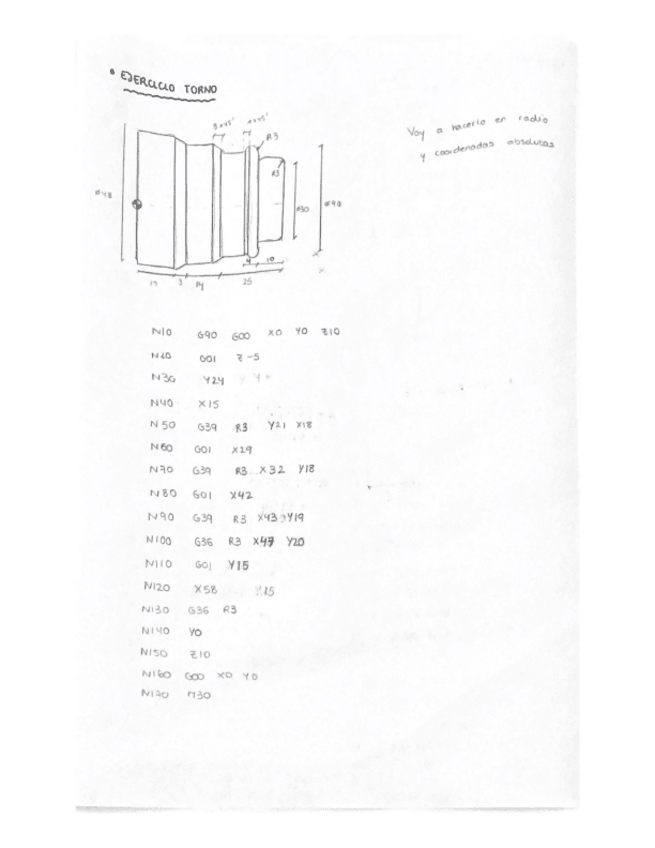 • EJERCICIO TORNO
Voy a hacerlo en radio
y coordenadas absolutas
3x45°
R3
R3
ø48
ø30
ø40
4
10
15
3
14
25
N10 G90 G00 X0 Y0 Z10
N20 G01 Z-5
N30 Y24
N40 X15
N50 G39 R3 Y21 X18
N60 G01 X29
N70 G39 R3 X32 Y18
N80 G01 X42
N90 G39 R3 X43 Y19
N100 G36 R3 X47 Y20
N110 G01 Y15
N120 X58
N130 G36 R3
N140 Y0
N150 Z10
N160 G00 X0 Y0
N170 M30